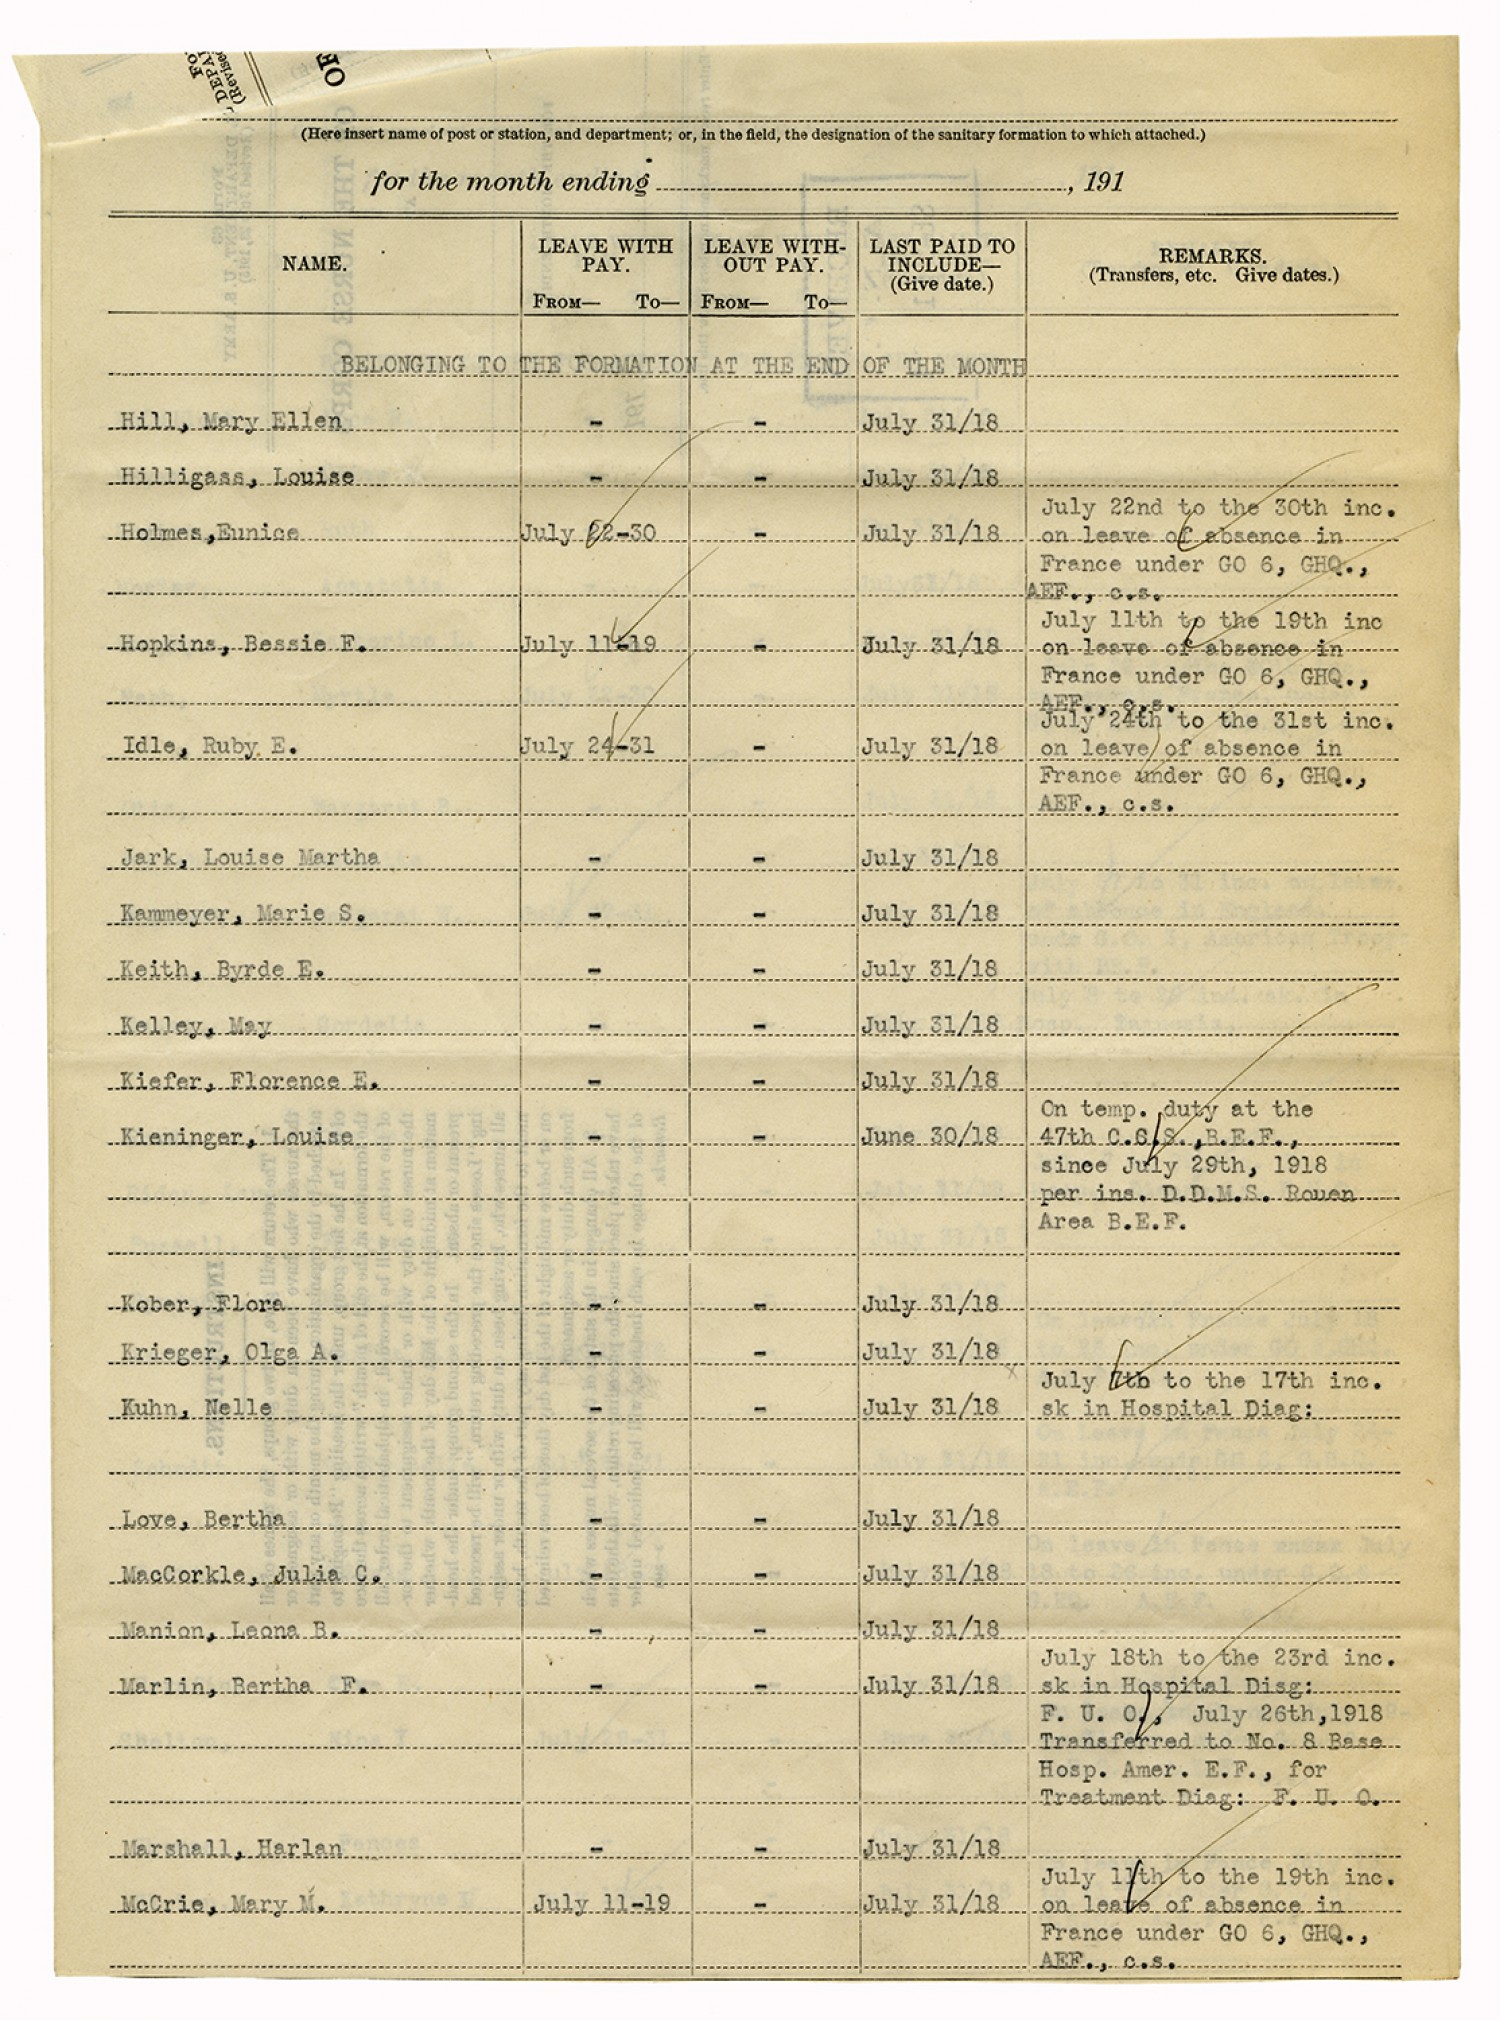 FO
DEPA
(Revised
OF
(Here insert name of post or station, and department; or, in the field, the designation of the sanitary formation to which attached.)
for the month ending , 191
NAME. LEAVE WITH PAY. FROM— TO— LEAVE WITH-OUT PAY. FROM— TO— LAST PAID TO INCLUDE— (Give date.) REMARKS. (Transfers, etc. Give dates.)
BELONGING TO THE FORMATION AT THE END OF THE MONTH
Hill, Mary Ellen - - July 31/18
Hilligass, Louise - - July 31/18
July 22nd to the 30th inc.
Holmes,Eunice July 22-30 - July 31/18 on leave of absence in
France under GO 6, GHQ.,
AEF., c.s.
July 11th to the 19th inc
Hopkins, Bessie F. July 11-19 - July 31/18 on leave of absence in
France under GO 6, GHQ.,
AEF., c.s.
July 24th to the 31st inc.
Idle, Ruby E. July 24-31 - July 31/18 on leave of absence in
France under GO 6, GHQ.,
AEF., c.s.
Jark, Louise Martha - - July 31/18
Kammeyer, Marie S. - - July 31/18
Keith, Byrde E. - - July 31/18
Kelley, May - - July 31/18
Kiefer, Florence E. - - July 31/18
On temp. duty at the
Kieninger, Louise - - June 30/18 47th C.C.S.,B.E.F.,
since July 29th, 1918
per ins. D.D.M.S. Rouen
Area B.E.F.
Kober, Flora - - July 31/18
Krieger, Olga A. - - July 31/18
July 7th to the 17th inc.
Kuhn, Nelle - - July 31/18 sk in Hospital Diag:
Love, Bertha - - July 31/18
MacCorkle, Julia C. - - July 31/18
Manion, Leona B. - - July 31/18
July 18th to the 23rd inc.
Marlin, Bertha F. - - July 31/18 sk in Hospital Disg:
F. U. O., July 26th,1918
Transferred to No. 8 Base
Hosp. Amer. E.F., for
Treatment Diag: F. U. O.
Marshall, Harlan - - July 31/18
July 11th to the 19th inc.
McCrie, Mary M. July 11-19 - July 31/18 on leave of absence in
France under GO 6, GHQ.,
AEF., c.s.